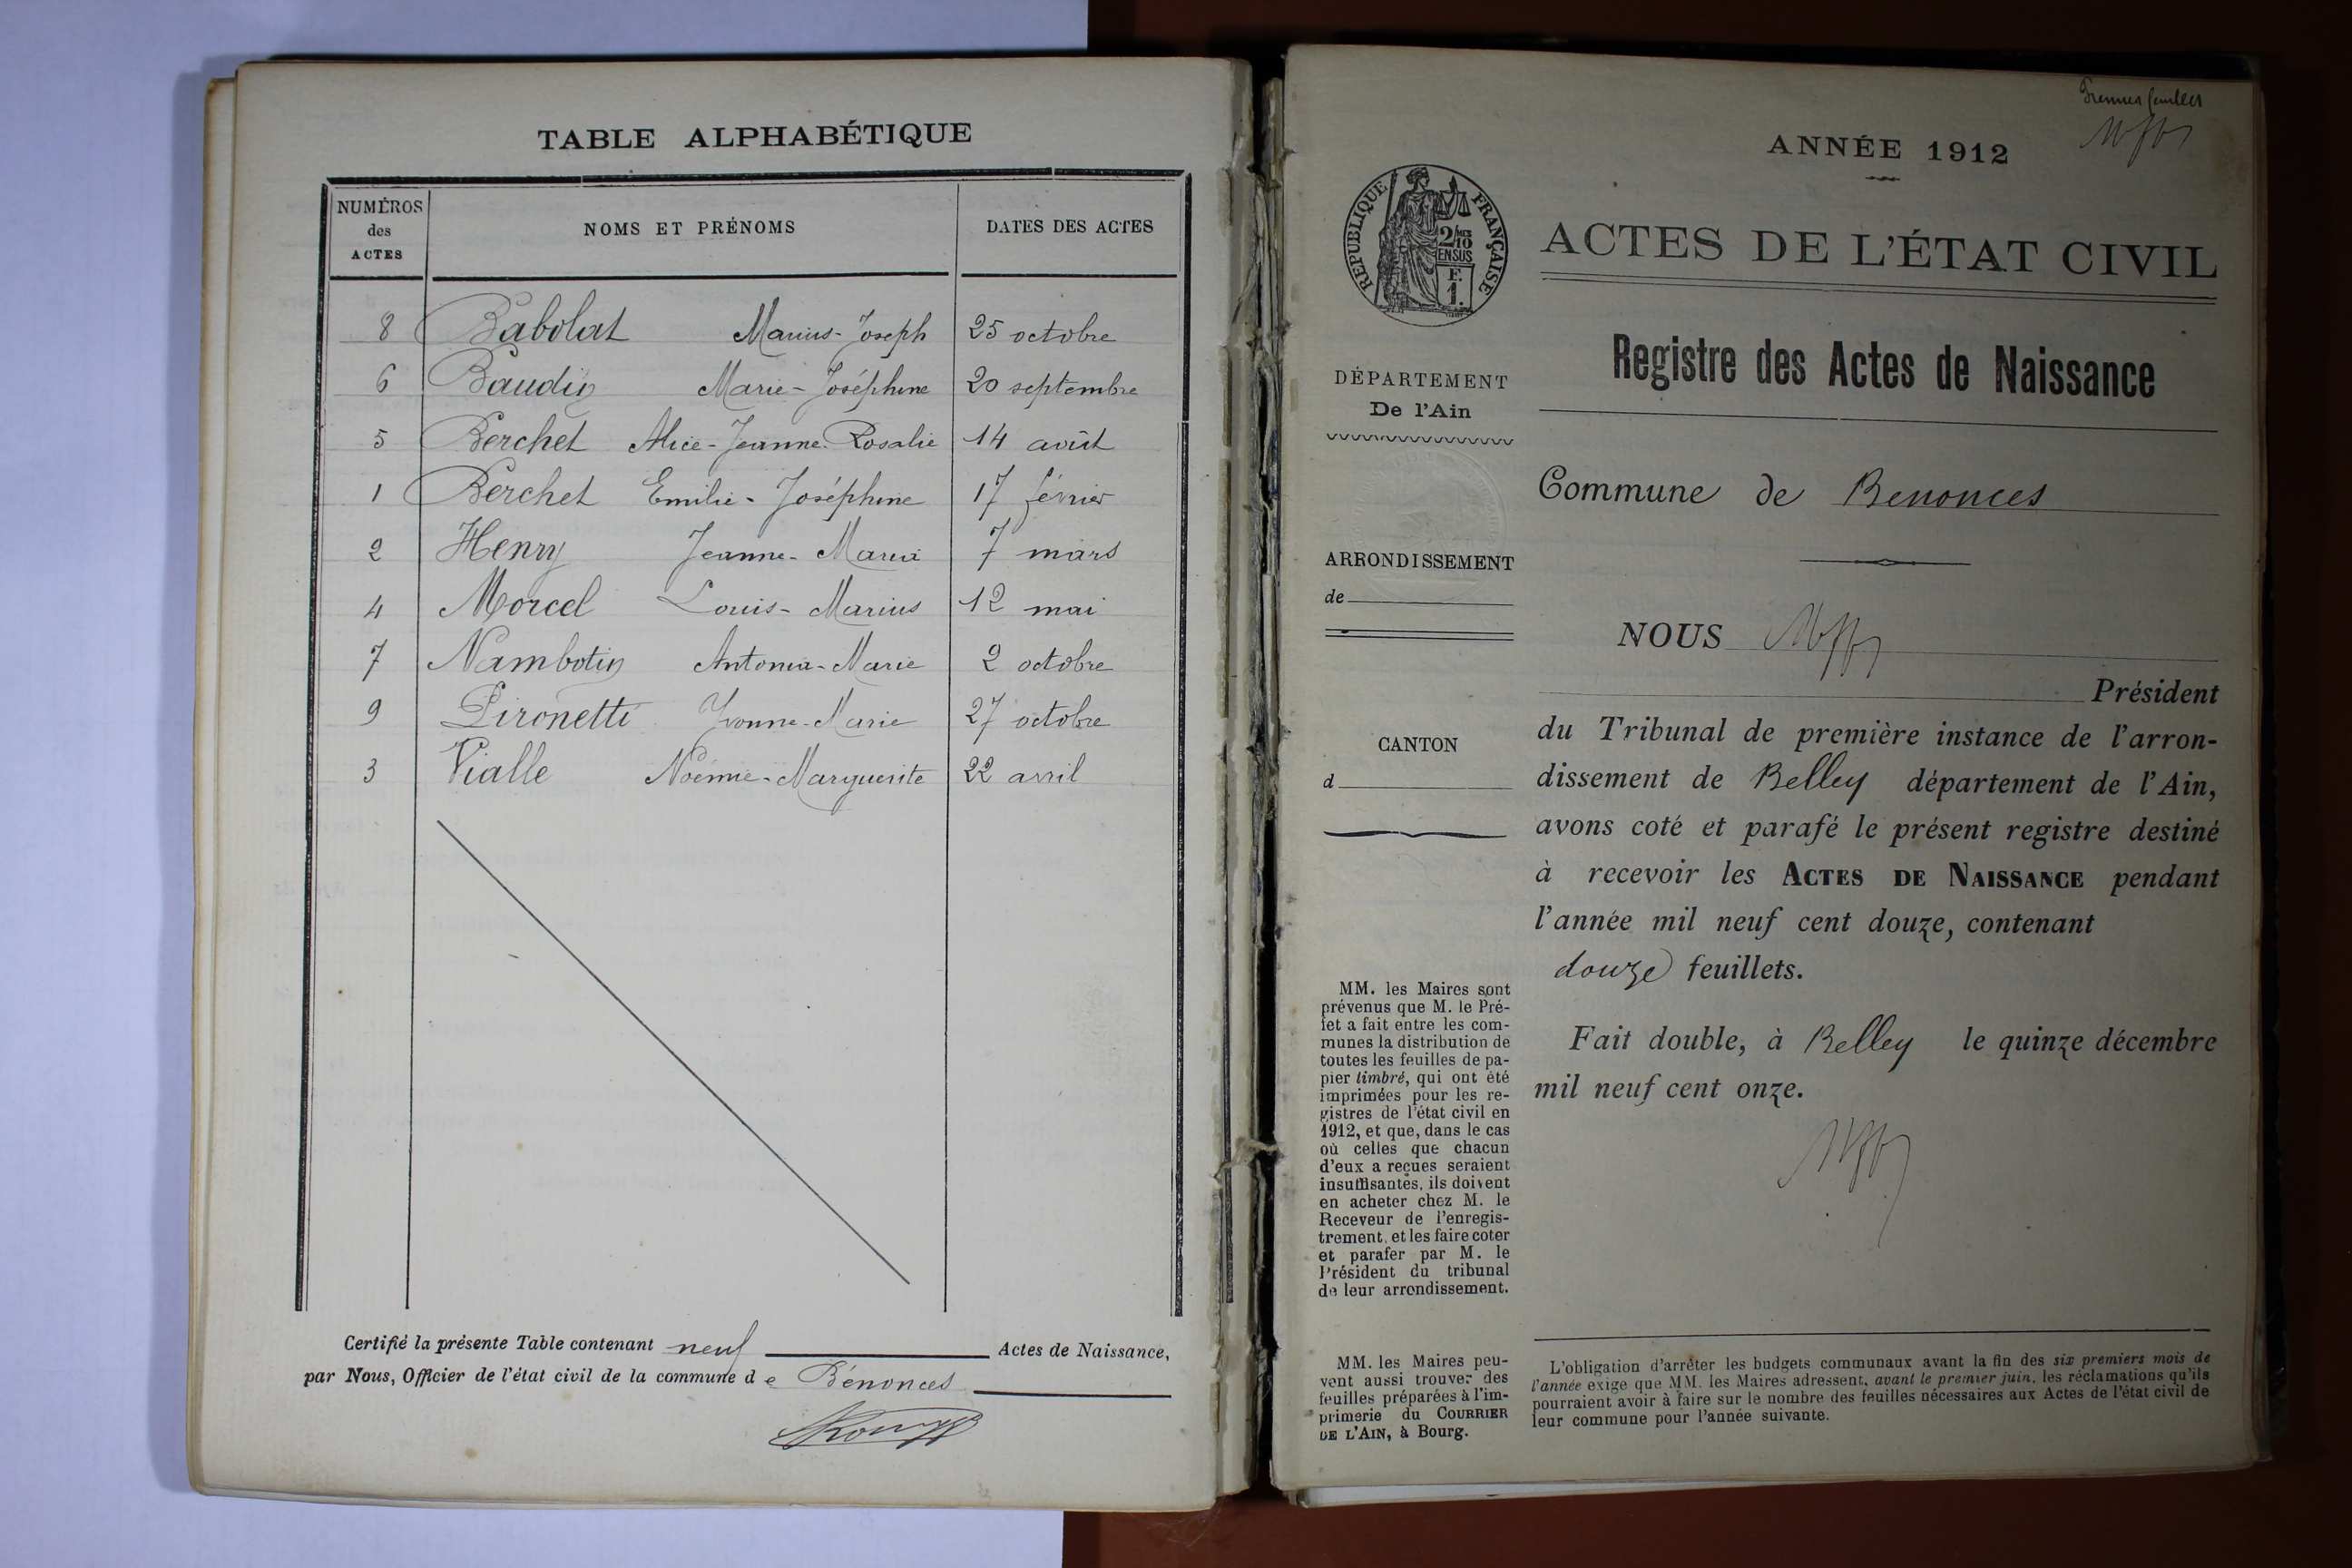 TABLE ALPHABÉTIQUE
NUMÉROS des ACTES NOMS ET PRÉNOMS DATES DES ACTES
8 Babolat Marius-Joseph 25 octobre
6 Baudin Marie-Joséphine 20 septembre
5 Berchet Alice-Jeanne-Rosalie 14 août
1 Berchet Emilie-Joséphine 17 février
2 Henry Jeanne-Maria 7 mars
4 Morcel Louis-Marius 12 mai
7 Nambotin Antonia-Marie 2 octobre
9 Pironetti Yvonne-Marie 27 octobre
3 Vialle Noémie-Marguerite 22 avril
Certifié la présente Table contenant neuf Actes de Naissance,
par Nous, Officier de l'état civil de la commune de Bénonces
ANNÉE 1912
RÉPUBLIQUE FRANÇAISE
2/10
EN SUS
F.
1.
DÉPARTEMENT
De l'Ain
ARRONDISSEMENT
de
CANTON
d
MM. les Maires sont
prévenus que M. le Pré-
fet a fait entre les com-
munes la distribution de
toutes les feuilles de pa-
pier timbré, qui ont été
imprimées pour les re-
gistres de l'état civil en
1912, et que, dans le cas
où celles que chacun
d'eux a reçues seraient
insuffisantes, ils doivent
en acheter chez M. le
Receveur de l'enregis-
trement, et les faire coter
et parafer par M. le
Président du tribunal
de leur arrondissement.
MM. les Maires peu-
vent aussi trouver des
feuilles préparées à l'im-
primerie du COURRIER
DE L'AIN, à Bourg.
ACTES DE L'ÉTAT CIVIL
Registre des Actes de Naissance
Commune de Benonces
NOUS
Président
du Tribunal de première instance de l'arron-
dissement de Belley département de l'Ain,
avons coté et parafé le présent registre destiné
à recevoir les ACTES DE NAISSANCE pendant
l'année mil neuf cent douze, contenant
douze feuillets.
Fait double, à Belley le quinze décembre
mil neuf cent onze.
L'obligation d'arrêter les budgets communaux avant la fin des six premiers mois de
l'année exige que MM. les Maires adressent, avant le premier juin, les réclamations qu'ils
pourraient avoir à faire sur le nombre des feuilles nécessaires aux Actes de l'état civil de
leur commune pour l'année suivante.